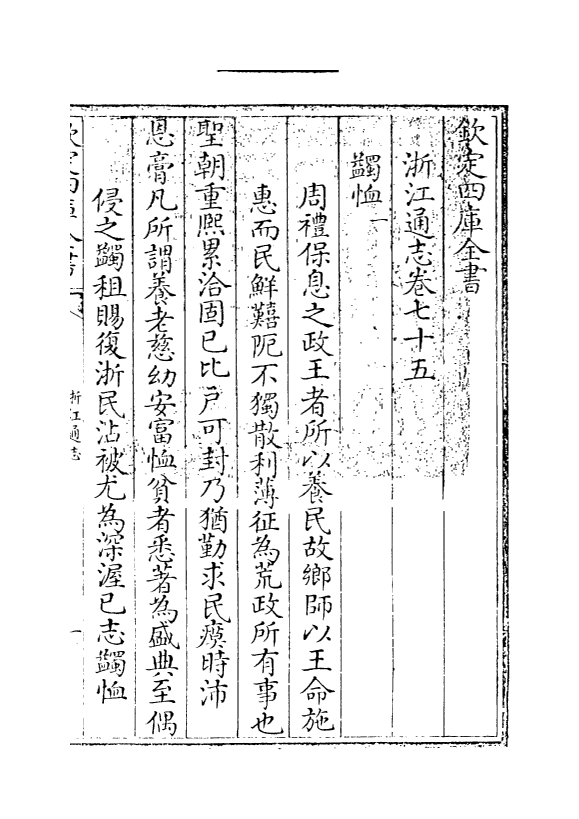 欽定四庫全書
浙江通志卷七十五
蠲恤一
周禮保息之政王者所以養民故鄉師以王命施
惠而民鮮囏阨不獨散利薄征為荒政所有事也
聖朝重熙累洽固已比户可封乃猶勤求民瘼時沛
恩膏凡所謂養老慈幼安富恤貧者悉著為盛典至偶
侵之蠲租賜復浙民沾被尤為深渥已志蠲恤
欽定四庫全書
浙江通志
一